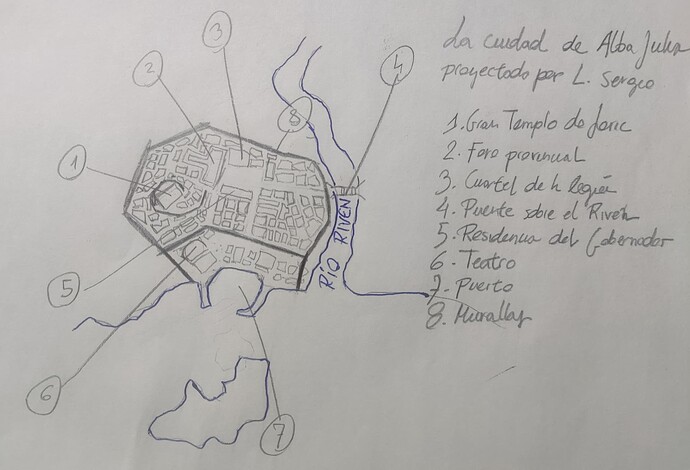 La ciudad de Alba Julia
proyectado por L. Sergio
1. Gran Templo de Joric
2. Foro provincial
3. Cuartel de la legión
4. Puente sobre el Riven
5. Residencia del Gobernador
6. Teatro
7. Puerto
8. Murallas
1
2
3
8
4
5
6
7
RÍO RIVEN